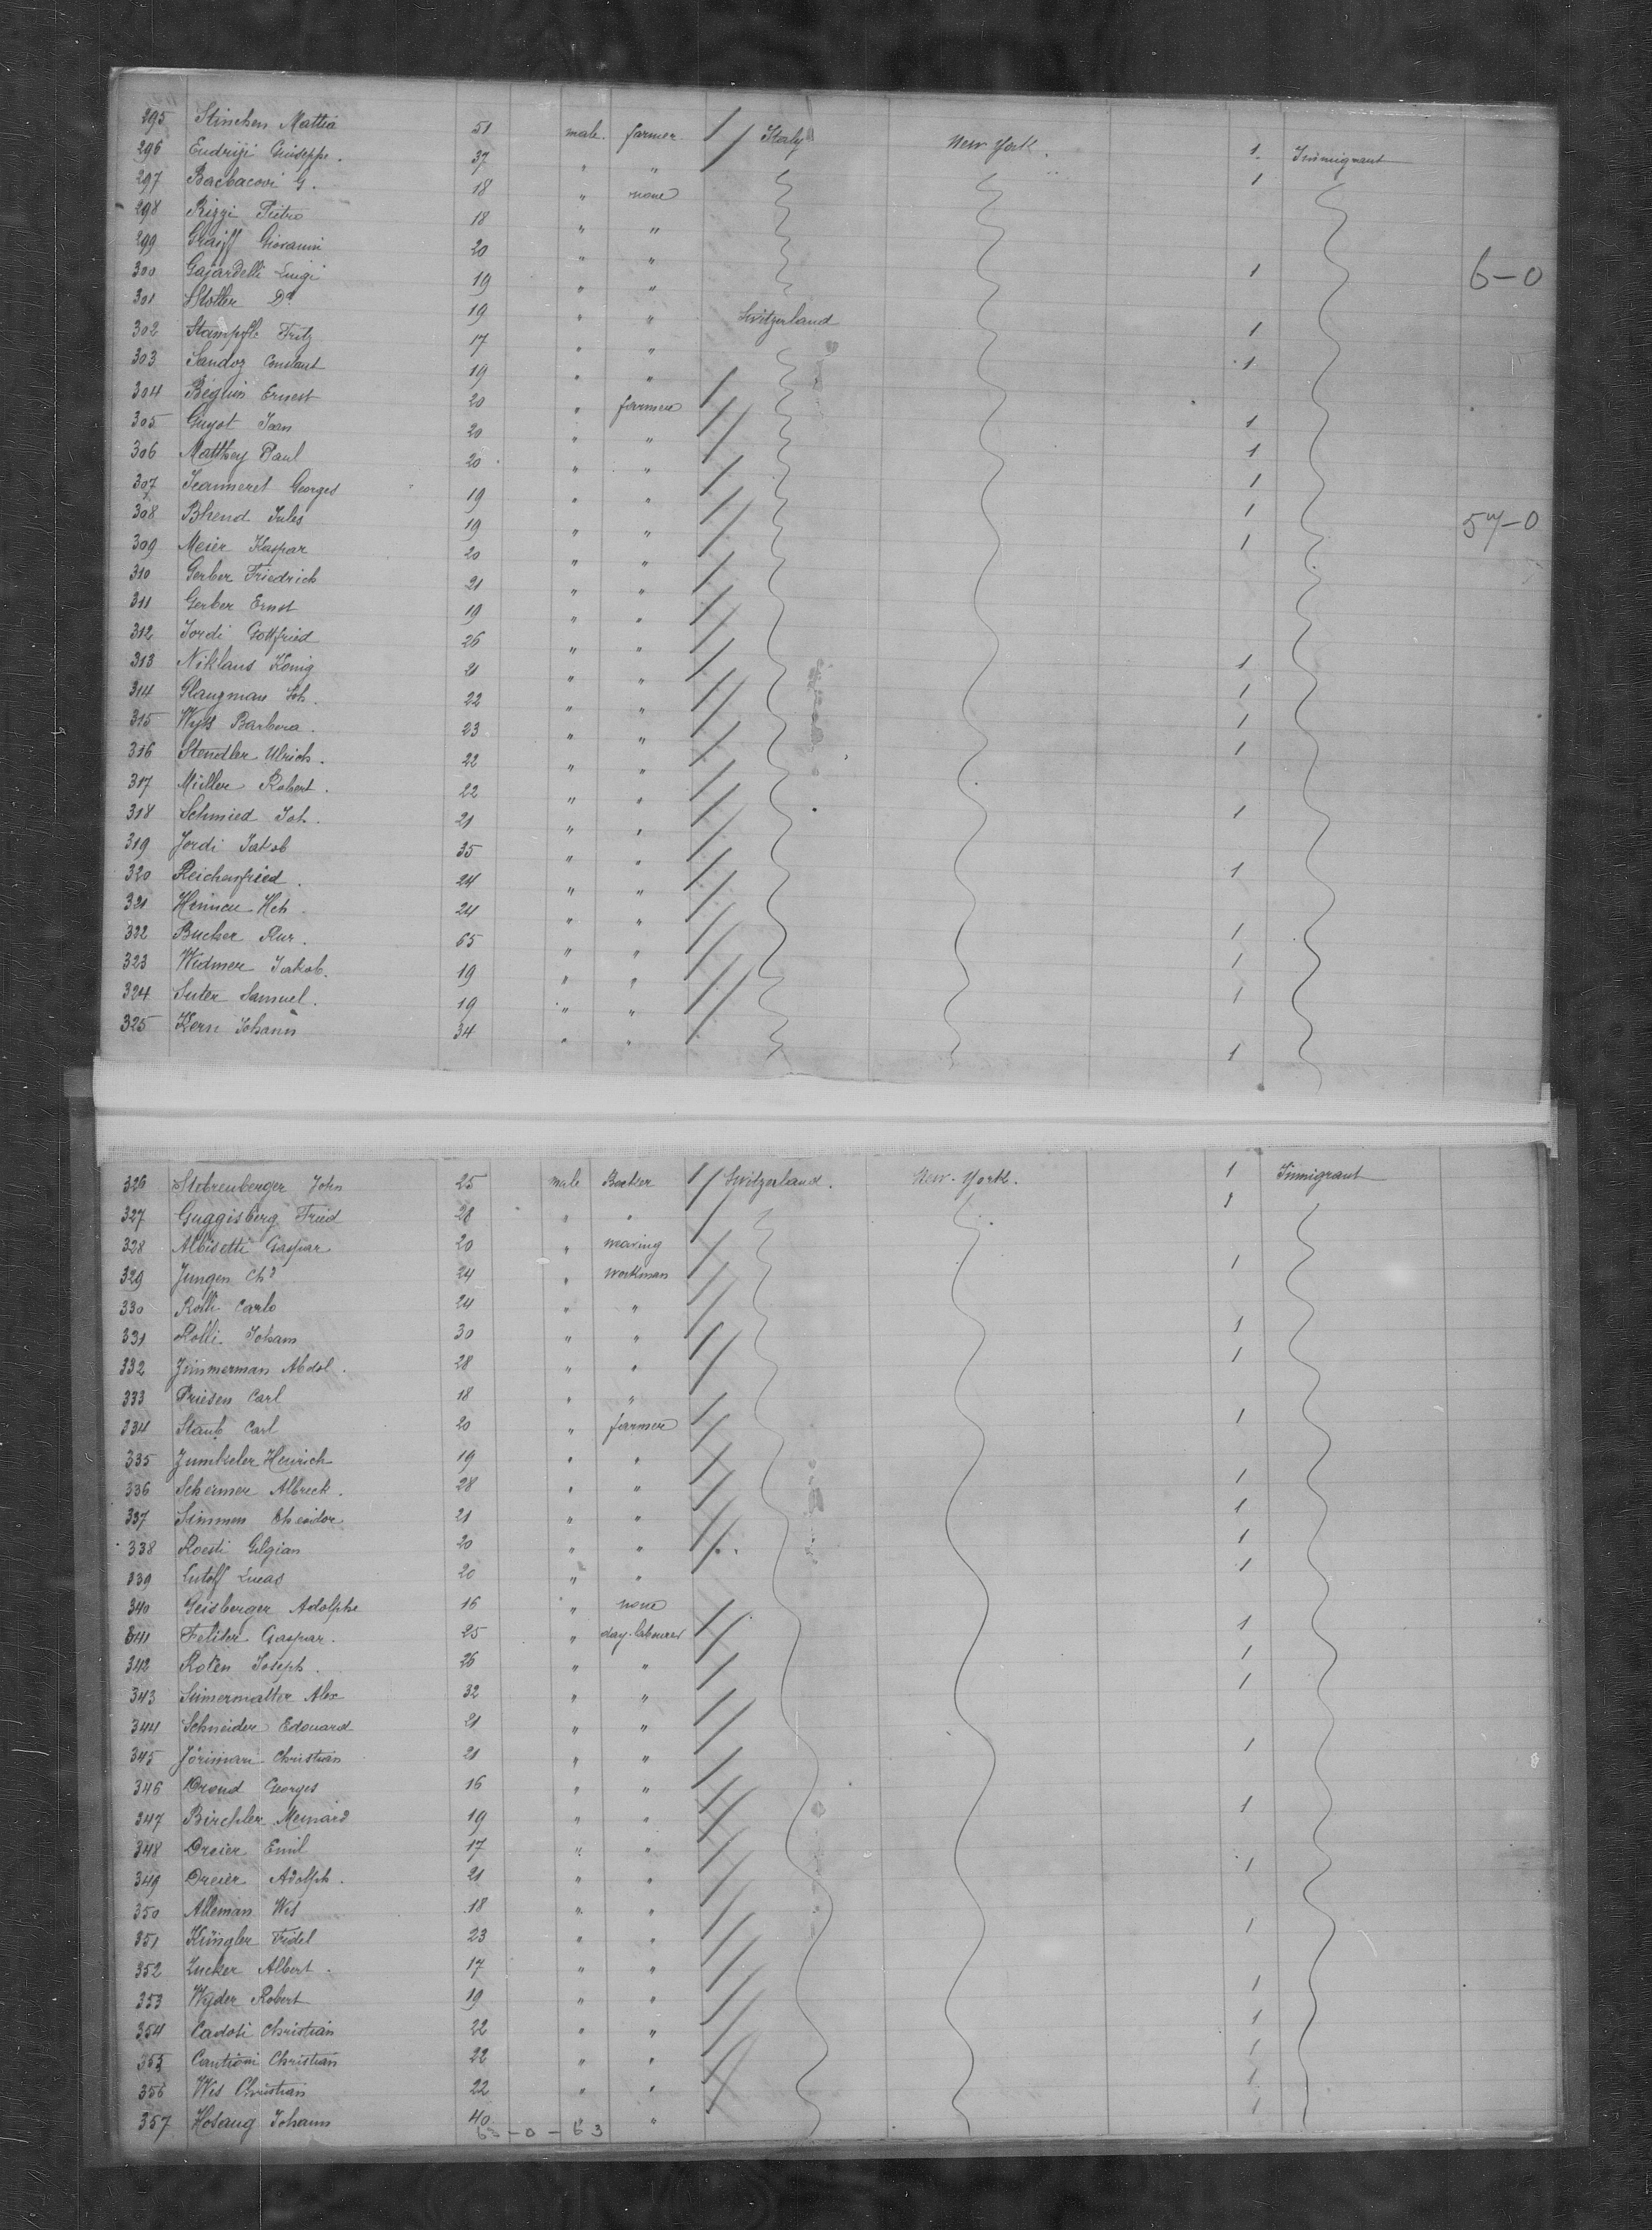 295 Stinchen Mattia 51 male. farmer Italy New York 1. Immigrant
296 Endrizi Giuseppe. 37 " " 1
297 Bacbacovi G. 18 " none
298 Rizzi Pietro 18 " "
299 Graiff Giovanni 20 " "
300 Gajardelli Luigi 19 " " 1 6-0
301 Stotler 19 " " Switzerland
302 Stampfli Fritz 17 " " 1
303 Sandoz Constant 19 " " 1
304 Béguin Ernest 20 " farmer
305 Guyot Jean 20 " " 1
306 Matthey Paul 20 " " 1
307 Jeanneret Georges 19 " " 1
308 Bhend Jules 19 " " 1 57-0
309 Meier Kaspar 20 " " 1
310 Gerber Friedrich 21 " "
311 Gerber Ernst 19 " "
312 Jordi Gottfried 26 " "
313 Niklaus König 21 " " 1
314 Glauzman Joh. 22 " " 1
315 Wyss Barbera. 23 " " 1
316 Stendler Ulrich. 22 " " 1
317 Müller Robert. 22 " "
318 Schmied Joh. 21 " " 1
319 Jordi Jakob 35 " "
320 Reichenfried. 24 " " 1
321 Heh. 24 " "
322 Bucher Rur. 65 " " 1
323 Widmer Jakob. 19 " " 1
324 Suter Samuel. 19 " " 1
325 Kern Johann 34 " " 1
326 Stebrenberger John 25 male Backer Switzerland. New-York. 1 Immigrant
327 Guggisberg Fried 28 " " 1
328 Albisetti Gaspar 20 "
329 Jungen Chs 24 " workman 1
330 Rolli Carlo 24 " "
331 Rolli Johann 30 " " 1
332 Zimmerman 28 " " 1
333 Friesen Carl 18 " "
334 Staub Carl 20 " farmer 1
335 Zumkeler Heinrich 19 " "
336 Scheimer Albreck. 28 " " 1
337 Simmen Theodor 21 " " 1
338 Roesti Gilgian 20 " " 1
339 Lutolf Lucas 20 " " 1
340 Geisberger Adolphe 16 " none
341 Feliser Gaspar. 25 " day-labourer 1
342 Roten Joseph. 26 " " 1
343 Simermatter Alex 32 " " 1
344 Schneider Edouard 21 " "
345 Jöriman Christian 21 " " 1
346 Drond Georges 16 " "
347 Birchler Meinard 19 " " 1
348 Dreier Emil 17 " "
349 Dreier Adolph. 21 " " 1
350 Alleman Wis 18 " "
351 Küngler Fridel 23 " " 1
352 Zucker Albert. 17 " "
353 Wyder Robert 19 " " 1
354 Cadosi Christian 22 " " 1
355 Cantieni Christian 22 " " 1
356 Wis Christian 22 " " 1
357 Hosang Johann 40 " " 1
63-0-63